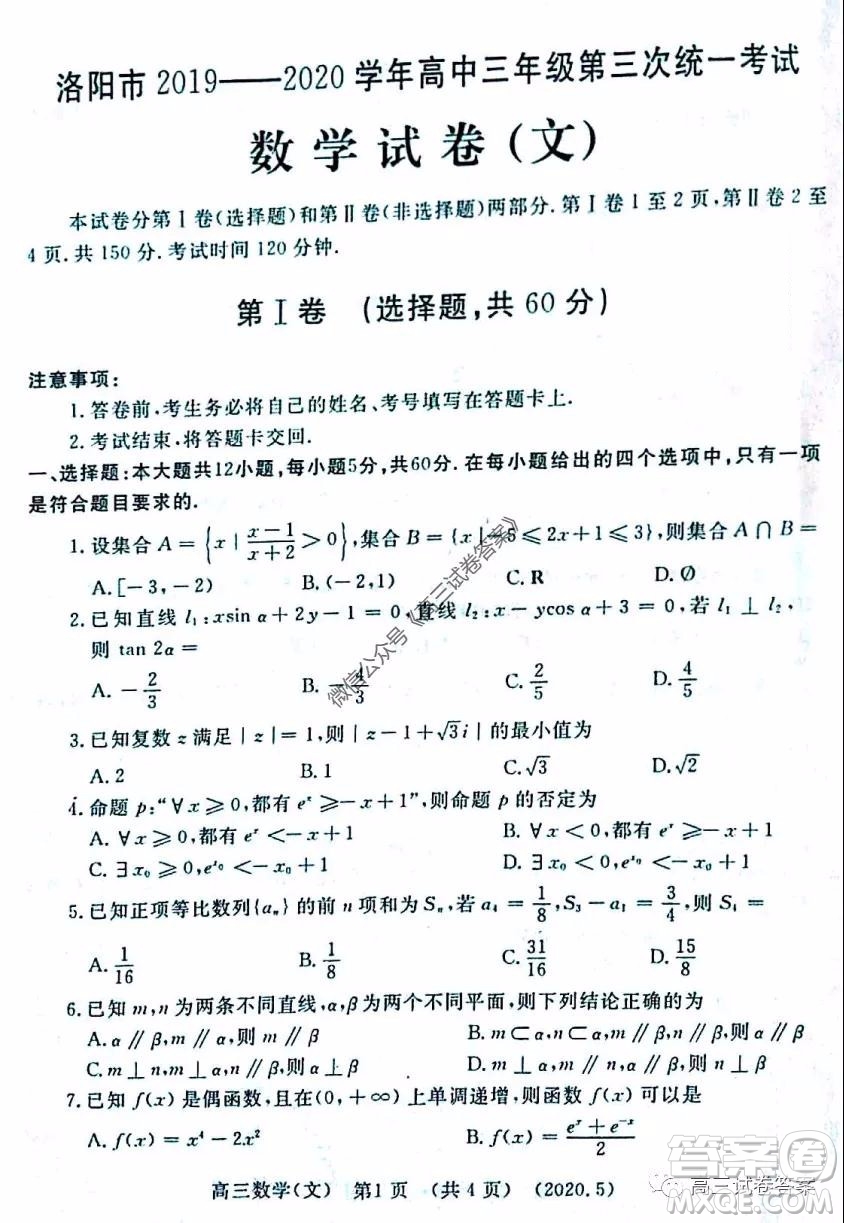 洛阳市 2019——2020 学年高中三年级第三次统一考试
数学试卷(文)
本试卷分第Ⅰ卷(选择题)和第Ⅱ卷(非选择题)两部分.第Ⅰ卷 1 至 2 页,第Ⅱ卷 2 至
4 页.共 150 分.考试时间 120 分钟.
第Ⅰ卷 (选择题,共 60 分)
注意事项:
1. 答卷前,考生务必将自己的姓名、考号填写在答题卡上.
2. 考试结束,将答题卡交回.
一、选择题:本大题共12小题,每小题5分,共60分.在每小题给出的四个选项中,只有一项
是符合题目要求的.
1. 设集合 A = {x | (x-1)/(x+2) > 0},集合 B = {x | -5 ⩽ 2x+1 ⩽ 3},则集合 A ∩ B =
A. [-3,-2) B. (-2,1) C. R D. Ø
2. 已知直线 l₁:xsin α+2y-1 = 0,直线 l₂:x-ycos α+3 = 0,若 l₁ ⊥ l₂,
则 tan 2α =
A. -2/3 B. -4/3 C. 2/5 D. 4/5
3. 已知复数 z 满足 | z | = 1,则 | z-1+√3i | 的最小值为
A. 2 B. 1 C. √3 D. √2
4. 命题 p:“∀x ⩾ 0,都有 eˣ ⩾ -x+1”,则命题 p 的否定为
A. ∀x ⩾ 0,都有 eˣ < -x+1 B. ∀x < 0,都有 eˣ ⩾ -x+1
C. ∃x₀ ⩾ 0,e^x₀ < -x₀+1 D. ∃x₀ < 0,e^x₀ < -x+1
5. 已知正项等比数列{aₙ}的前 n 项和为 Sₙ,若 a₄ = 1/8,S₃-a₁ = 3/4,则 S₄ =
A. 1/16 B. 1/8 C. 31/16 D. 15/8
6. 已知 m,n 为两条不同直线,α,β 为两个不同平面,则下列结论正确的为
A. α ∥ β,m ∥ α,则 m ∥ β B. m ⊂ α,n ⊂ α,m ∥ β,n ∥ β,则 α ∥ β
C. m ⊥ n,m ⊥ α,n ∥ β,则 α ⊥ β D. m ⊥ α,m ∥ n,α ∥ β,则 n ⊥ β
7. 已知 f(x) 是偶函数,且在(0,+∞) 上单调递增,则函数 f(x) 可以是
A. f(x) = x⁴-2x² B. f(x) = (eˣ+e⁻ˣ)/2
高三数学(文) 第1页 (共 4 页) (2020.5)
微信公众号《高三试卷答案》
高三试卷答案
答案圈
MXQE.COM